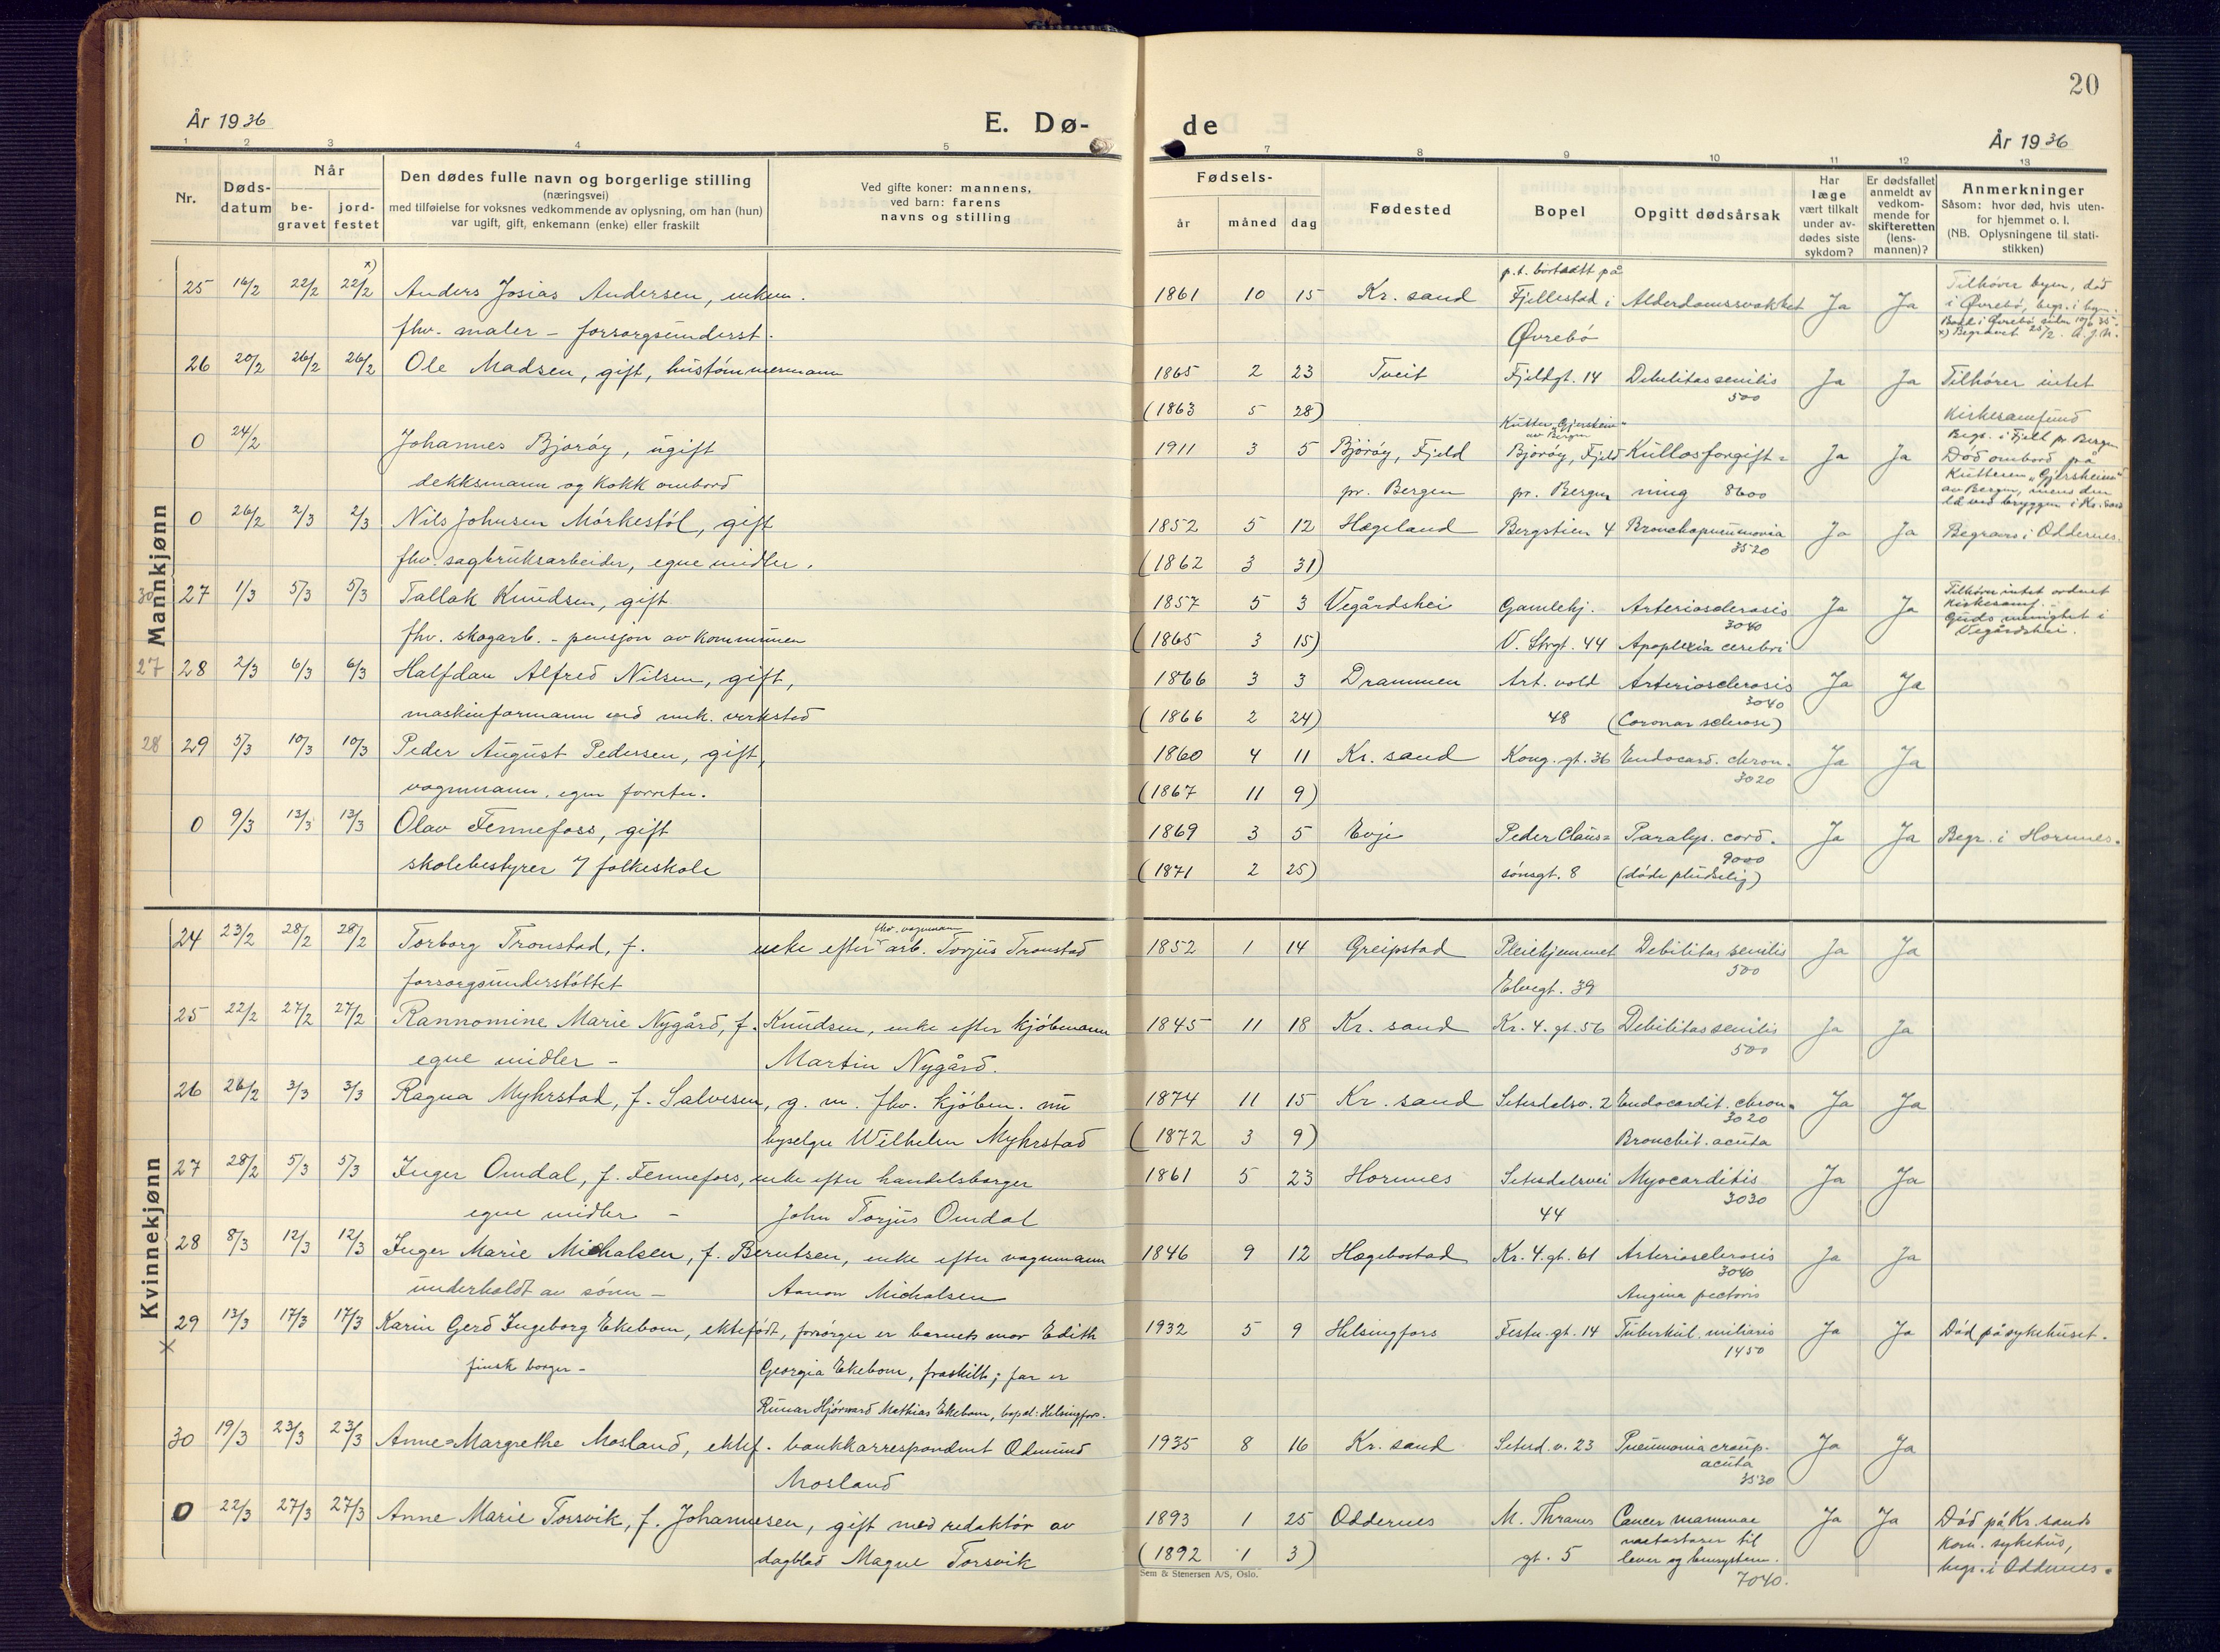 20
År 1936
E. Dø-
de
År 1936
1 2 3 4 5
7 8 9 10 11 12 13
Nr.
Døds-
datum
Når
be-
gravet
jord-
festet
Den dødes fulle navn og borgerlige stilling
(næringsvei)
med tilføielse for voksnes vedkommende av oplysning, om han (hun)
var ugift, gift, enkemann (enke) eller fraskilt
Ved gifte koner: mannens,
ved barn: farens
navns og stilling
Fødsels-
år måned dag
Fødested
Bopel
Opgitt dødsårsak
Har
læge
vært tilkalt
under av-
dødes siste
sykdom?
Er dødsfallet
anmeldt av
vedkom-
mende for
skifteretten
(lens-
mannen)?
Anmerkninger
Såsom: hvor død, hvis uten-
for hjemmet o. l.
(NB. Oplysningene til stati-
stikken)
Mannkjønn
x)
p.t. bortsatt på
25 16/2 22/2 22/2 Anders Josias Andersen, enkem. 1861 10 15 Kr. sand Fjellestad i Alderdomssvakhet Ja Ja Tilhører byen, död
fhv. maler - forsorgsunderst. Øvrebö i Øvrebö, begr. i byen.
Bodd i Øvrebö siden 10/6 35.
x) Begravet 25/2. A.J.N.
26 20/2 26/2 26/2 Ole Madsen, gift, hustömmermann 1865 2 23 Tveit Fjeldgt. 14 Debilitas senilis Ja Ja Tilhörer intet
500
(1863 5 28) kirkesamfund
Kutter "Gjersheim"
av Bergen
0 24/2 Johannes Bjoröy, ugift 1911 3 5 Björöy, Fjeld Bjoröy, Fjeld Kullosforgift= Ja Ja Begr. i Fjell pr Bergen
dekksmann og kokk ombord pr. Bergen pr. Bergen ning 8600 Död ombord på
Kutteren "Gjersheim"
av Bergen, mens den
lå ved bryggen i Kr. sand
0 26/2 2/3 2/3 Nils Johnsen Mörkestöl, gift 1852 5 12 Hægeland Bergstien 4 Bronchopneumonia Ja Ja Begraves i Oddernes.
3520
fhv. sagbruksarbeider, egne midler. (1862 3 31)
30 27 1/3 5/3 5/3 Tallak Knudsen, gift 1857 5 3 Vegårdshei Gamlehj. Arteriosclerosis Ja Ja Tilhörer intet ordnet
3040 kirkesamf.
fhv. skogarb. - pensjon av kommunen (1865 3 15) V. Strgt. 44 Apoplexia cerebri Guds menighet i
Vegårdshei.
27 28 2/3 6/3 6/3 Halfdan Alfred Nilsen, gift, 1866 3 3 Drammen Art. vold Arteriosclerosis Ja Ja
3040
maskinformann ved mek. verksted (1866 2 24) 48 (Coronar sclerose)
28 29 5/3 10/3 10/3 Peder August Pedersen, gift, 1860 4 11 Kr. sand Kong. gt. 36 Endocard. chron. Ja Ja
3020
vognmann, egen forretn. (1867 11 9)
0 9/3 13/3 13/3 Olav Fennefoss, gift 1869 3 5 Evje Peder Claus= Paralys. cord. Ja Ja Begr. i Hornnes.
9000
skolebestyrer v/ folkeskole (1871 2 25) sönsgt. 8 (döde pludselig)
Kvinnekjønn
fhv. vognmann
24 23/2 28/2 28/2 Torborg Tronstad, f. enke efter arb. Torjus Tronstad 1852 1 14 Greipstad Pleiehjemmet Debilitas senilis Ja Ja
500
forsorgsunderstöttet Elvegt. 39
25 22/2 27/2 27/2 Rannomine Marie Nygård, f. Knudsen, enke efter kjöbmann 1845 11 18 Kr. sand Kr. 4. gt. 56 Debilitas senilis Ja Ja
500
egne midler - Martin Nygård.
26 26/2 3/3 3/3 Ragna Myhrstad, f. Salvesen, g. m. fhv. kjöbm. nu 1874 11 15 Kr. sand Setesdalsv. 2 Endocardit. chron. Ja Ja
3020
byselger Wilhelm Myhrstad (1872 3 9) Bronchit. acuta
27 28/2 5/3 5/3 Inger Omdal, f. Fennefoss, enke efter handelsborger 1861 5 23 Hornnes Setesdalsvei Myocarditis Ja Ja
3030
egne midler - John Torjus Omdal 44
28 8/3 12/3 12/3 Inger Marie Michalsen, f. Berntsen, enke efter vognmann 1846 9 12 Hægebostad Kr. 4. gt. 61 Arteriosclerosis Ja Ja
3040
underholdt av sönn - Aanon Michalsen Angina pectoris
29 13/3 17/3 17/3 Karin Gerd Ingeborg Ekebom, ektefödt, forsörger er barnets mor Edith 1932 5 9 Helsingfors Festn. gt. 14 Tuberkul. miliaris Ja Ja Död på sykehuset.
1450
x
finsk borger - Georgia Ekebom, fraskilt; far er
Runar Hjörvard Mathias Ekebom, bopel: Helsingfors.
30 19/3 23/3 23/3 Anne=Margrethe Mosland, ektef. bankkorrespondent Odmund 1935 8 16 Kr. sand Setesd. v. 23 Pneumonia croup. Ja Ja
acuta
3530
Mosland
0 22/3 27/3 27/3 Anne Marie Torsvik, f. Johannesen, gift med redaktör av 1893 1 25 Oddernes M. Thranes Cancer mammae Ja Ja Död på Kr. sands
metastaser til kom. sykehus,
dagblad Magne Torsvik (1892 1 3) gt. 5 lever og
7040. begr. i Oddernes.
Sem & Stenersen A/S, Oslo.